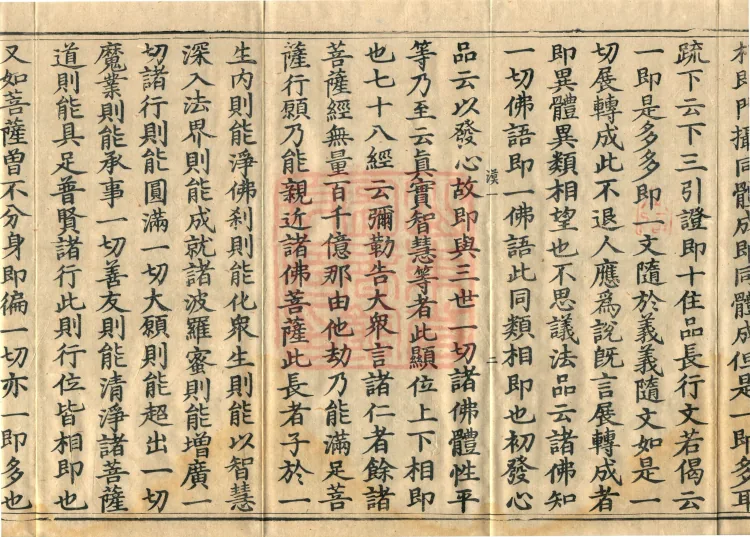 相即門攝同體成即同體成位是一即多耳
疏下云下三引證即十住品長行文若偈云
一即是多多即一文隨於義義隨文如是一
切展轉成此不退人應為說既言展轉成者
即異體異類相望也不思議法品云諸佛知
一切佛語即一佛語此同類相即也初發心
漠一
二
品云以發心故即與三世一切諸佛體性平
等乃至云真實智慧等者此顯位上下相即
也七十八經云彌勒告大衆言諸仁者餘諸
菩薩經無量百千億那由他劫乃能滿足菩
薩行願乃能親近諸佛菩薩此長者子於一
生内則能淨佛刹則能化衆生則能以智慧
深入法界則能成就諸波羅蜜則能增廣一
切諸行則能圓滿一切大願則能超出一切
魔業則能承事一切善友則能清淨諸菩薩
道則能具足普賢諸行此則行位皆相即也
又如菩薩曾不分身即徧一切亦一即多也